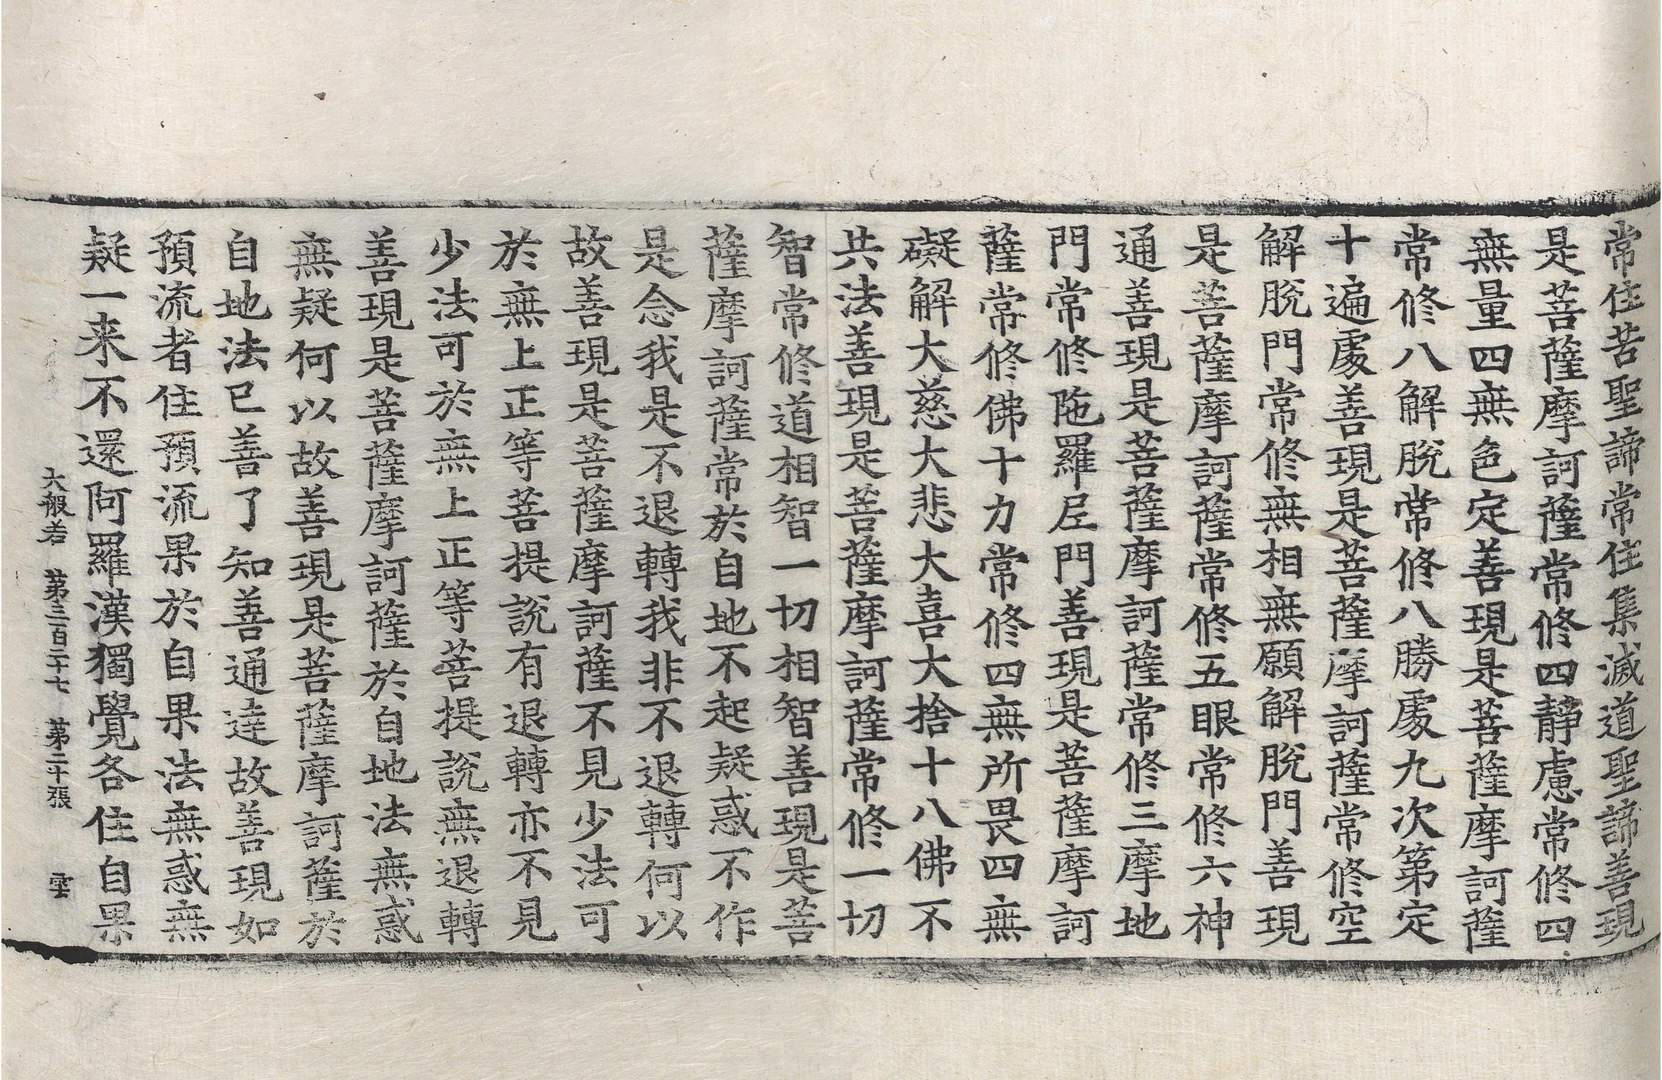 常住苦聖諦常住集滅道聖諦善現
是菩薩摩訶薩常修四靜慮常修四
無量四無色定善現是菩薩摩訶薩
常修八解脫常修八勝處九次第定
十遍處善現是菩薩摩訶薩常修空
解脫門常修無相無願解脫門善現
是菩薩摩訶薩常修五眼常修六神
通善現是菩薩摩訶薩常修三摩地
門常修陁羅尼門善現是菩薩摩訶
薩常修佛十力常修四無所畏四無
礙解大慈大悲大喜大捨十八佛不
共法善現是菩薩摩訶薩常修一切
智常修道相智一切相智善現是菩
薩摩訶薩常於自地不起疑惑不作
是念我是不退轉我非不退轉何以
故善現是菩薩摩訶薩不見少法可
於無上正等菩提說有退轉亦不見
少法可於無上正等菩提說無退轉
善現是菩薩摩訶薩於自地法無惑
無疑何以故善現是菩薩摩訶薩於
自地法已善了知善通達故善現如
預流者住預流果於自果法無惑無
疑一来不還阿羅漢獨覺各住自果
大般若 第三百二十七 第二十張 雲